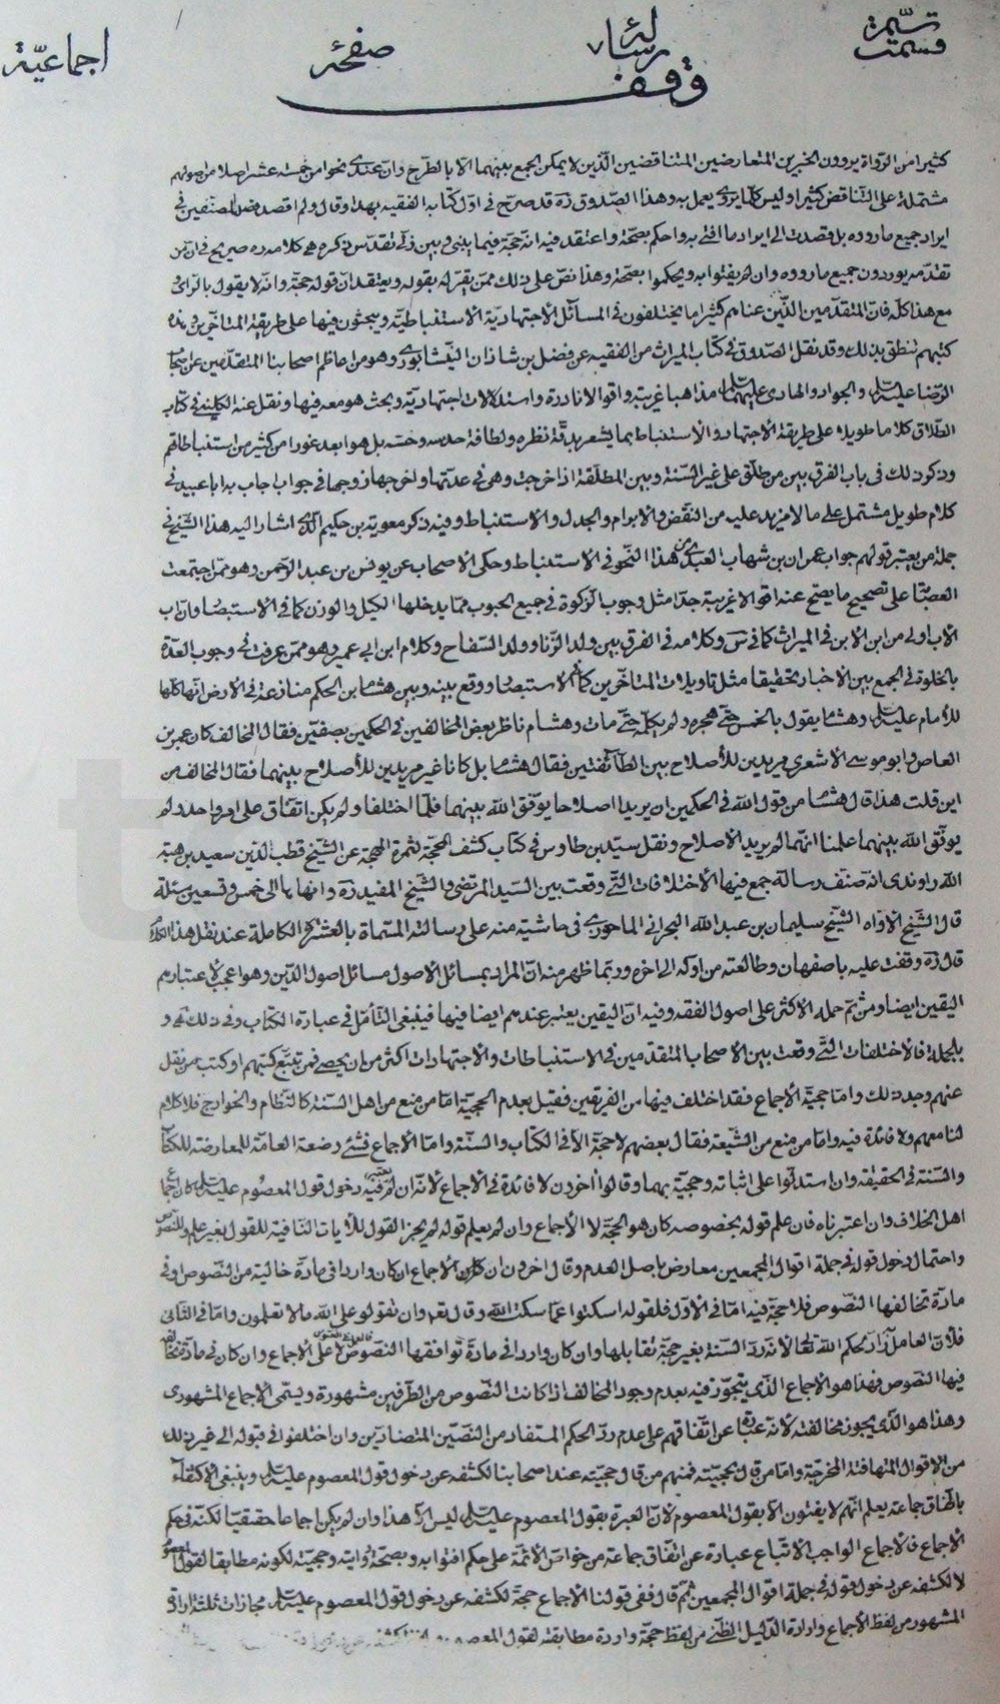 تتميمة قسمت رسالهٔ صفحهٔ اجماعيّة
وقف
كثيرا من الرّواة يروون الخبرين المتعارضين المتناقضين الّذين لا يمكن الجمع بينهما الّا بالطّرح وانّ عندى نحوا من خمسة عشر اصلا من اصولهم
مشتملة على التّناقض كثيرا وليس كلّما يروى يعمل به وهذا الصّدوق ره قد صرّح فى اوّل كتابه الفقيه بهذا وقال ولم اقصد قصد المصنّفين فى
ايراد جميع ما رووه بل قصدت الى ايراد ما افتى به واحكم بصحّته واعتقد فيه انّه حجّة فيما بينى وبين ربّى تقدّس ذكره هى كلامه ره صريح فى انّ من
تقدّمه يوردون جميع ما رووه وان لم يفتوا به ويحكموا بصحّته وهذا نصّ على ذلك ممّن يقرّ له بقوله ويعتقد انّ قوله حجّة وانّه لا يقول بالرّأى
مع هذا كلّه فانّ المتقدّمين الّذين عناهم كثيرا ما يختلفون فى المسائل الاجتهاديّة الاستنباطيّة ويبحثون فيها على طريقة المتأخّرين وهذه
كتبهم تنطق بذلك وقد نقل الصّدوق فى كتاب الميراث من الفقيه عن فضل بن شاذان النّيشابورى وهو من اعاظم اصحابنا المتقدّمين عن اصحاب
الرّضا عليه السلام والجواد والهادى عليهما السلام مذاهبا غريبة واقوالا نادرة واستدلالات اجتهاديّة وبحث هو معه فيها ونقل عنه الكلينى فى كتاب
الطّلاق كلاما طويلا على طريقة الاجتهاد والاستنباط بما يشعر بدقّة نظره ولطافة حدسه وحسّه بل هو ابعد غورا من كثير من استنباطاتهم
وذكر ذلك فى باب الفرق بين من طلّق على غير السّنة وبين المطلّقة اذا خرجت وهى فى عدّتها او اخرجها زوجها فى جواب اجاب به ابا عبيد فى
كلام طويل مشتمل على ما لا مزيد عليه من النّقض والابرام والجدل والاستنباط وفيه ذكر معوية بن حكيم الّذى اشار اليه هذا الشّيخ فى
جملة من يعتبر قولهم جواب عمران بن شهاب العبدى بهذا النّحو فى الاستنباط وحكى الاصحاب عن يونس بن عبد الرّحمن وهو ممّن اجتمعت
العصابة على تصحيح ما يصحّ عنه اقوالا غريبة جدّا مثل وجوب الزّكوة فى جميع الحبوب ممّا يدخلها الكيل والوزن كما فى الاستبصار وانّ اب
الاب اولى من ابن الابن فى الميراث كما فى س وكلامه فى الفرق بين ولد الزّنا وولد السّفاح وكلام ابن ابى عمير وهو ممّن عرفت فى وجوب العدّة
بالخلوة فى الجمع بين الاخبار تحقيقا مثل تاويلات المتأخّرين كما فى الاستبصار ووقع بينه وبين هشام بن الحكم منازعة فى الارض انّها كلّها
للأمام عليه السلام وهشام يقول بالخمس حتّى هجره ولم يكلّمه حتّى مات وهشام ناظر بعض المخالفين فى الحكمين بصفّين فقال المخالف كان عمرو بن
العاص وابو موسى الاشعرى مريدين للأصلاح بين الطّائفتين فقال هشام بل كانا غير مريدين للأصلاح بينهما فقال المخالف من
اين قلت هذا قال هشام من قول اللّه فى الحكمين ان يريدا اصلاحا يوفّق اللّه بينهما فلمّا اختلفا ولم يكن اتّفاق على امر واحد ولم
يوفّق اللّه بينهما علمنا انّهما لم يريدا الاصلاح ونقل سيّد بن طاوس فى كتاب كشف المحجّة لثمرة المهجة عن الشّيخ قطب الدّين سعيد بن هبة
اللّه راوندى انّه صنّف رسالة جمع فيها الاختلافات الّتى وقعت بين السّيد المرتضى والشّيخ المفيد ره وانهاها الى خمس وتسعين مسئلة
قال الشّيخ الاوّاه الشّيخ سليمان بن عبد اللّه البحرانى الماحوزى فى حاشية منه على رسالته المسمّاة بالعشرة الكاملة عند نقل هذا الكلام
قال ره وقفت عليه باصفهان وطالعته من اوّله الى اخره وربّما ظهر منه انّ المراد بمسائل الاصول مسائل اصول الدّين وهو اعجب لاعتبارهم
اليقين ايضا ومن ثمّ حمله الاكثر على اصول الفقه وفيه انّ اليقين يعتبر عندهم ايضا فيها فينبغى التّأمّل فى عبارة الكتاب وفى ذلك هى و
بالجملة فالاختلفات الّتى وقعت بين الاصحاب المتقدّمين فى الاستنباطات والاجتهادات اكثر من ان يحصى فمن تتبّع كتبهم او كتب من نقل
عنهم وجد ذلك وامّا حجيّة الاجماع فقد اختلف فيها من الفريقين فقيل بعدم الحجيّة امّا من منع من اهل السّنة كالنّظام والخوارج فلا كلام
لنا معهم ولا فائدة فيه وامّا من منع من الشّيعة فقال بعضهم لا حجّة الّا فى الكتاب والسّنّة وامّا الاجماع فشئ وضعه العامّة للمعارضة للكتاب
والسّنة فى الحقيقة وان استدلّوا على اثباته وحجيّة بهما وقالوا آخرون لا فائدة فى الاجماع لانّه ان لم يعتبر فيه دخول قول المعصوم عليه السلام كان اجماع
اهل الخلاف وان اعتبرناه فان علم قوله بخصوصه كان هو الحجّة لا الاجماع وان لم يعلم قوله لم يجز القول للآيات النّافية للقول بغير علم وللنّصوص
واحتمال دخول قوله فى جملة اقوال المجمعين معارض باصل العدم وقال اخرون ان كان الاجماع ان كان واردا فى مادّة خالية من النّصوص او فى
مادّة تخالفها النّصوص فلا حجّة فيه امّا فى الاوّل فلقوله اسكتوا عمّا سكت اللّه وقال تع وان تقولو على اللّه ما لا تعلمون وامّا فى الثّانى
فلأنّ العامل رادّ لحكم اللّه تعالى لانّه ردّ السّنة بغير حجّة تقابلها وان كان واردا فى مادّة توافقها النّصوص لا على الاجماع وان كان فى مادّة تخالف
فيها النّصوص فهذا هو الاجماع الّذى يتجوّز فيه بعدم وجود المخالف اذا كانت النّصوص من الطّرفين مشهورة ويسمّى الاجماع المشهورى
وهذا هو الّذى يجوز مخالفته لانّه عبارة عن اتّفاقهم على عدم ردّ الحكم المستفاد من النّصّين المتضادّين وان اختلفوا فى قبوله الى غير ذلك
من الاقوال المتهافتة المخرجة وامّا من قال بحجيّته فمنهم من قال حجيّته عند اصحابنا لكشفه عن دخول قول المعصوم عليه السلام وينبغى الاكتفاء
باتّفاق جماعة يعلم انّهم لا يفتون الّا بقول المعصوم لانّ العبرة بقول المعصوم عليه السلام ليس الّا هذا وان لم يكن اجماعا حقيقيّا لكنّه فى حكم
الاجماع فالاجماع الواجب الاتّباع عبارة عن اتّفاق جماعة من خواصّ الائمّة على حكم افتوا به وبصحّة روايته وحجيّته لكونه مطابقا لقول المعصوم
لا لكشفه عن دخول قوله فى جملة اقوال المجمعين ثمّ قال ففى قولنا الاجماع حجّة لكشفه عن دخول قول المعصوم عليه السلام مجازات ثلثة ارادة
المشهور من لفظ الاجماع وارادة الدّليل الظّنّى من لفظ حجّة وارادة مطابقته لقول المعصوم